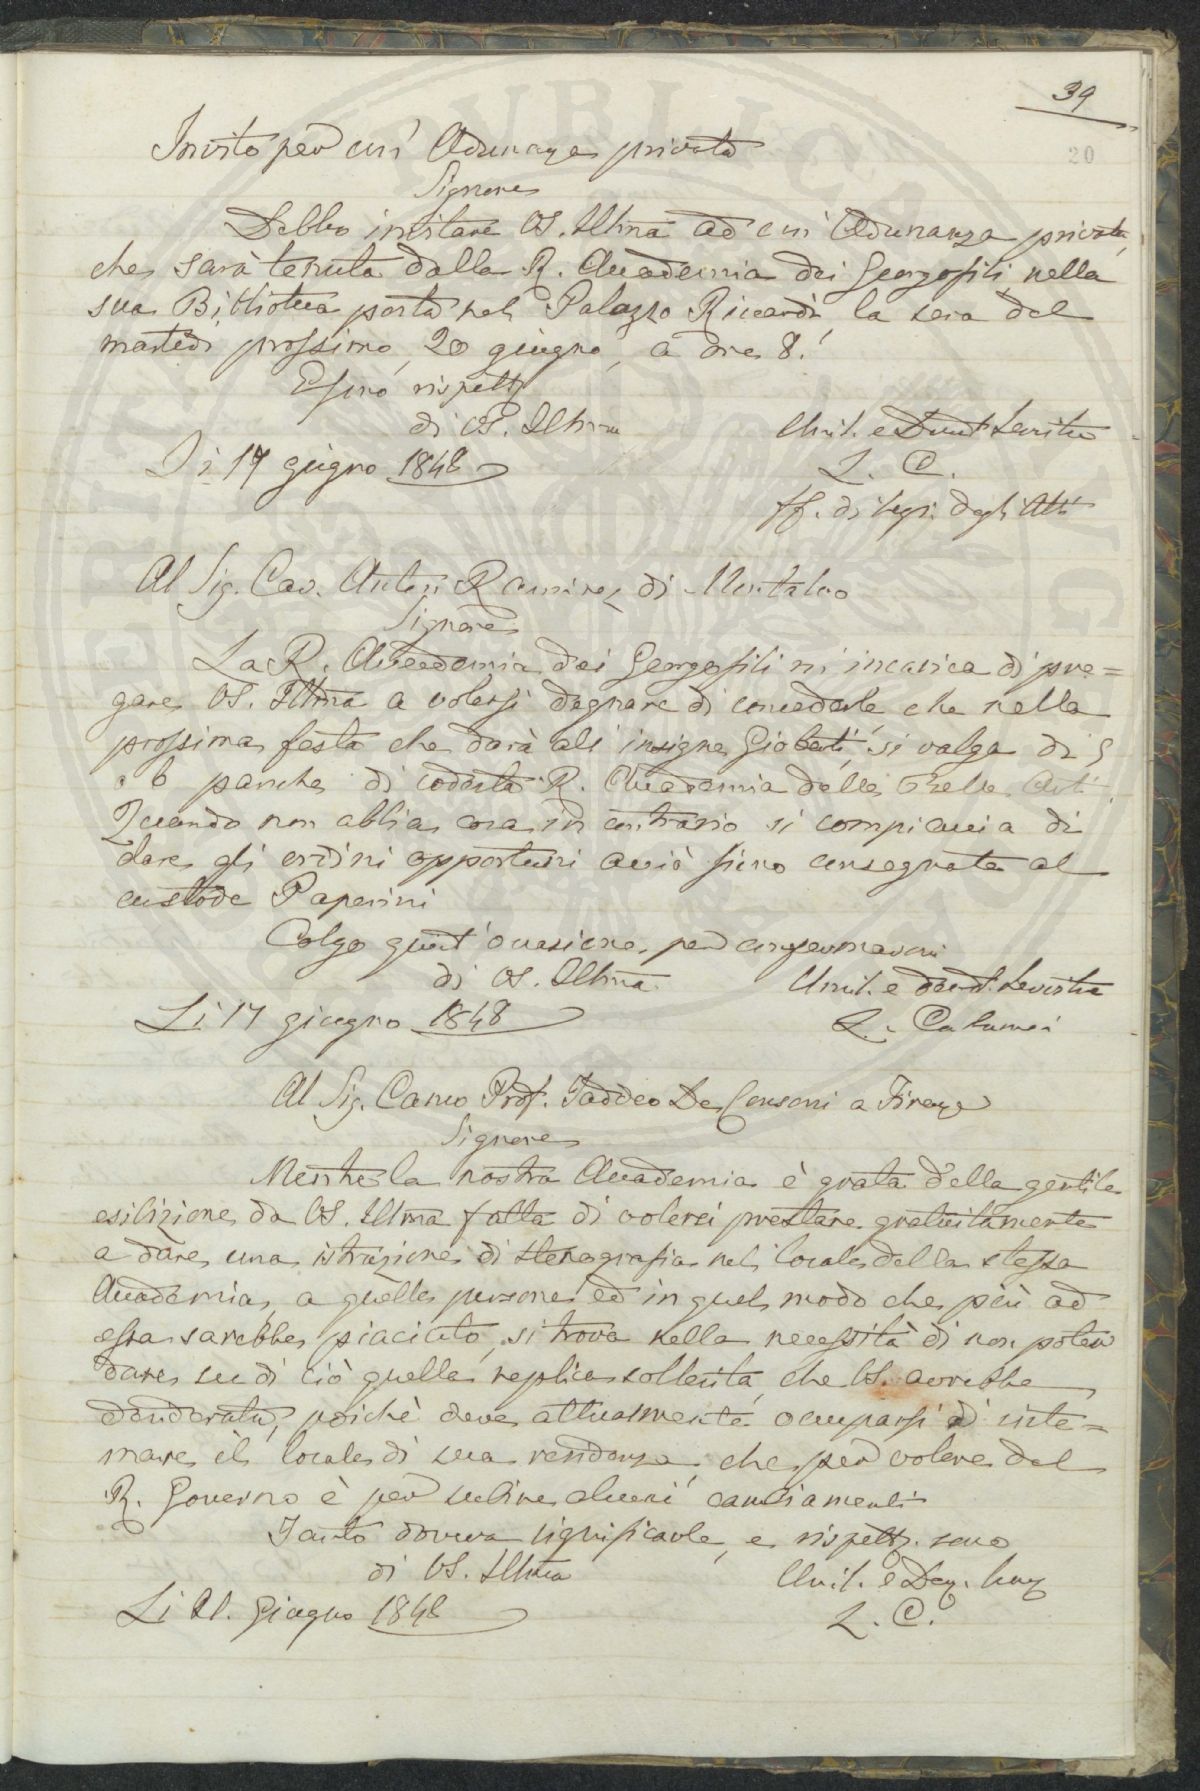 39
20
Invito per un' Adunanza privata
Signore
Debbo invitare VS. Illma ad un' Adunanza privata,
che sarà tenuta dalla R. Accademia dei Georgofili nella
sua Biblioteca posta nel Palazzo Riccardi la sera del
martedì prossimo, 20 giugno, a ore 8.
E sono rispetto
di VS. Illma
Umil. e Devot Servitre
Li 17 giugno 1848
L. C.
ff. di Segr. degli Atti
Al Sig. Cav. Anton Ramirez di Montalvo
Signore
La R. Accademia dei Georgofili m'incarica di pre=
gare VS. Illma a volersi degnare di concederle che nella
prossima festa che darà all' insigne Gioberti, si valga di 5
o 6 panche di codesta R. Accademia delle Belle Arti.
Quando non abbia cosa in contrario si compiaccia di
dare gli ordini opportuni acciò sieno consegnate al
custode Paperini
Colgo quest' occasione per confermarmi
di VS. Illma
Umil. e devot. Servitre
Li 17 giugno 1848
L. Calamai
Al Sig. Canco Prof. Taddeo De Consoni a Firenze
Signore
Mentre la nostra Accademia è grata della gentile
esibizione da VS. Illma fatta di volersi prestare gratuitamente
a dare una istruzione di stenografia nel locale della stessa
Accademia, a quelle persone ed in quel modo che più ad
essa sarebbe piaciuto, si trova nella necessità di non poter
dare su di ciò quella replica sollecita, che VS. avrebbe
desiderata, poichè deve attualmente occuparsi di siste=
mare il locale di sua residenza, che per volere del
R. Governo è per subire alcuni cambiamenti
Tanto doveva significarle, e rispetto. sono
di VS. Illma
Umil. e Dev.
Li 21. Giugno 1848
L. C.